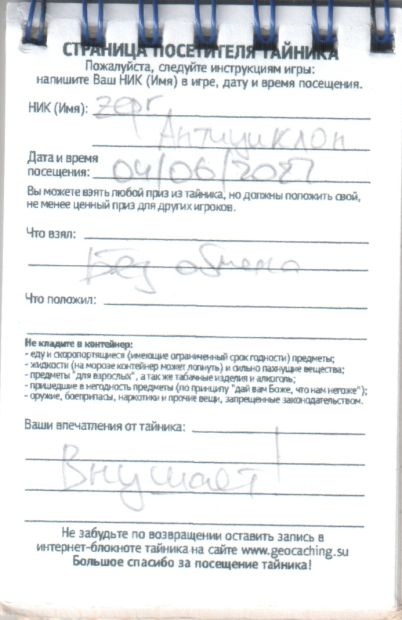 СТРАНИЦА ПОСЕТИТЕЛЯ ТАЙНИКА
Пожалуйста, следуйте инструкциям игры:
напишите Ваш НИК (Имя) в игре, дату и время посещения.
НИК (Имя): zepr
Антициклон
Дата и время
посещения: 04/06/2021
Вы можете взять любой приз из тайника, но должны положить свой,
не менее ценный приз для других игроков.
Что взял:
Без обмена
Что положил:
Не кладите в контейнер:
- еду и скоропортящиеся (имеющие ограниченный срок годности) предметы;
- жидкости (на морозе контейнер может лопнуть) и сильно пахнущие вещества;
- предметы "для взрослых", а так же табачные изделия и алкоголь;
- пришедшие в негодность предметы (по принципу "дай вам Боже, что нам негоже");
- оружие, боеприпасы, наркотики и прочие вещи, запрещенные законодательством.
Ваши впечатления от тайника:
Внушает!
Не забудьте по возвращении оставить запись в
интернет-блокноте тайника на сайте www.geocaching.su
Большое спасибо за посещение тайника!